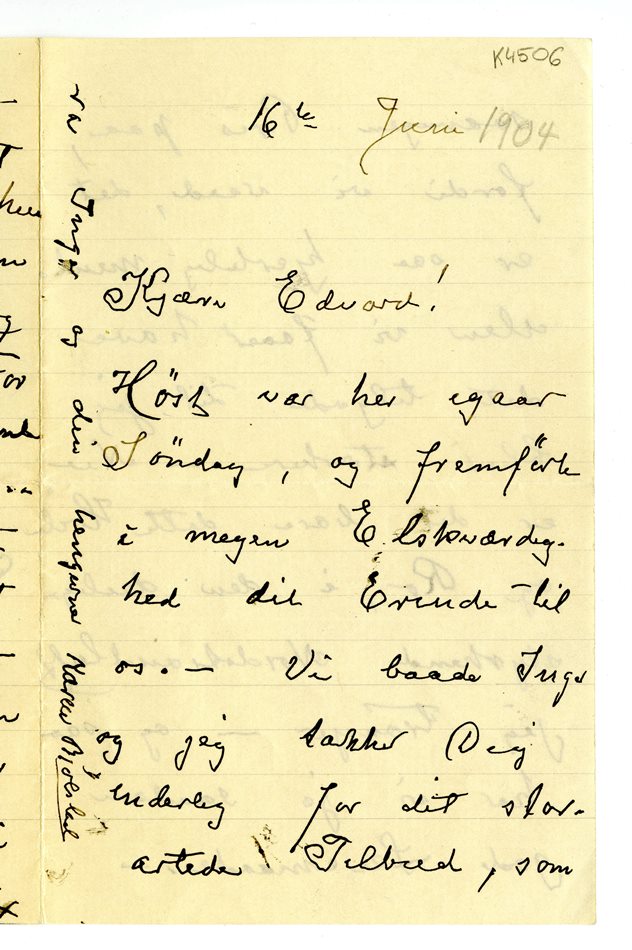 K4506
16de Juni 1904
Kjære Edvard!
Höst var her igaar
Söndag, og fremförte
i megen Elskværdig-
hed dit Erende til
os. — Vi baade Inger
og jeg takker Deg
inderlig for dit stor-
artede Tilbud, som
fra Inger og din hengivne Karen Bjølstad